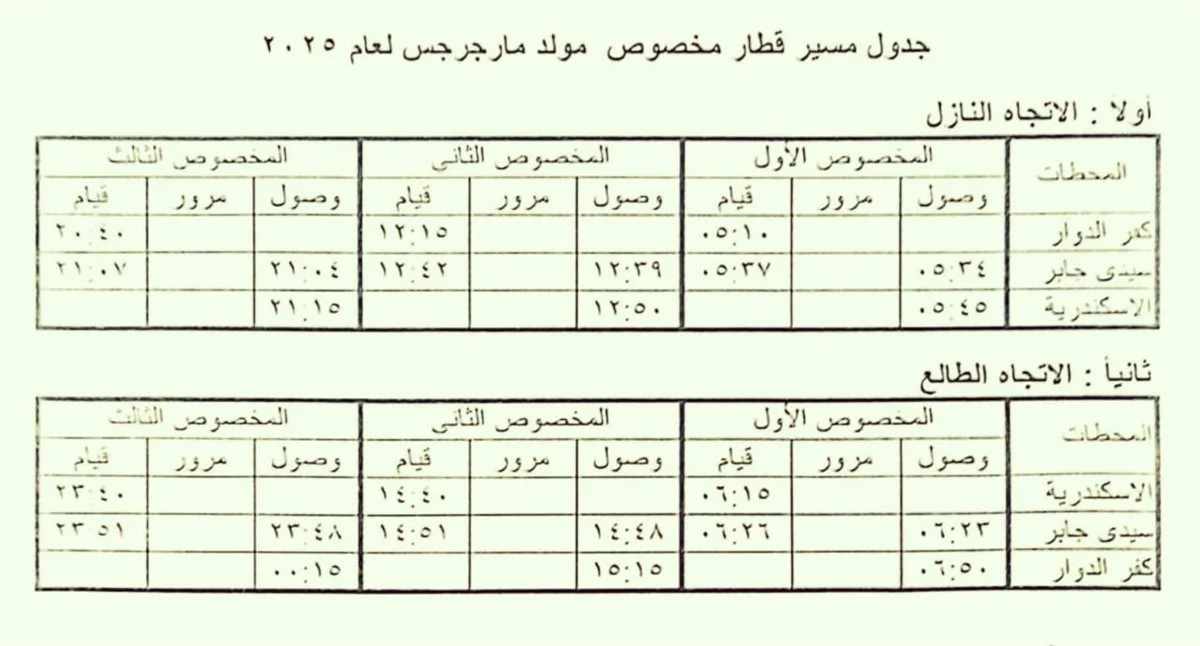 جدول مسير قطار مخصوص مولد مارجرجس لعام ٢٠٢٥
أولاً : الاتجاه النازل
المحطات المخصوص الأول المخصوص الثاني المخصوص الثالث
وصول مرور قيام وصول مرور قيام وصول مرور قيام
كفر الدوار ٠٥:١٠ ١٢:١٥ ٢٠:٤٠
سيدى جابر ٠٥:٣٤ ٠٥:٣٧ ١٢:٣٩ ١٢:٤٢ ٢١:٠٤ ٢١:٠٧
الاسكندرية ٠٥:٤٥ ١٢:٥٠ ٢١:١٥
ثانياً : الاتجاه الطالع
المحطات المخصوص الأول المخصوص الثاني المخصوص الثالث
وصول مرور قيام وصول مرور قيام وصول مرور قيام
الاسكندرية ٠٦:١٥ ١٤:٤٠ ٢٣:٤٠
سيدى جابر ٠٦:٢٣ ٠٦:٢٦ ١٤:٤٨ ١٤:٥١ ٢٣:٤٨ ٢٣:٥١
كفر الدوار ٠٦:٥٠ ١٥:١٥ ٠٠:١٥